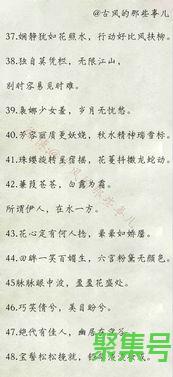 @古风的那些事儿
37.娴静犹如花照水，行动好比风扶柳。
38.独自莫凭栏，无限江山，
别时容易见时难。
39.袅娜少女羞，岁月无忧愁。
40.芳蓉丽质更妖娆，秋水精神瑞雪标。
41.珠缨旋转星宿摇，花蔓抖擞龙蛇动。
42.蒹葭苍苍，白露为霜。
所谓伊人，在水一方。
43.花心定有何人捻，晕晕如娇靥。
44.回眸一笑百媚生，六宫粉黛无颜色。
45脉脉眼中波，盈盈花盛处。
46.巧笑倩兮，美目盼兮。
47.绝代有佳人，幽居在
48.宝髻松松挽就，铅
聚集号
juhehao.com